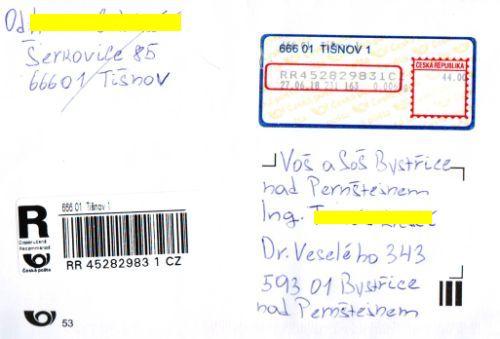 Od
Šerkovice 85
66601 Tišnov
666 01 TIŠNOV 1
RR452829831CZ
27.06.18
ČESKÁ REPUBLIKA
44.00
Voš a Soš Bystřice
nad Pernštejnem
Ing.
Dr. Veselého 343
593 01 Bystřice
nad Pernštejnem
666 01 Tišnov 1
R
Doporučeně
Recommandé
Česká pošta
RR 45282983 1 CZ
53